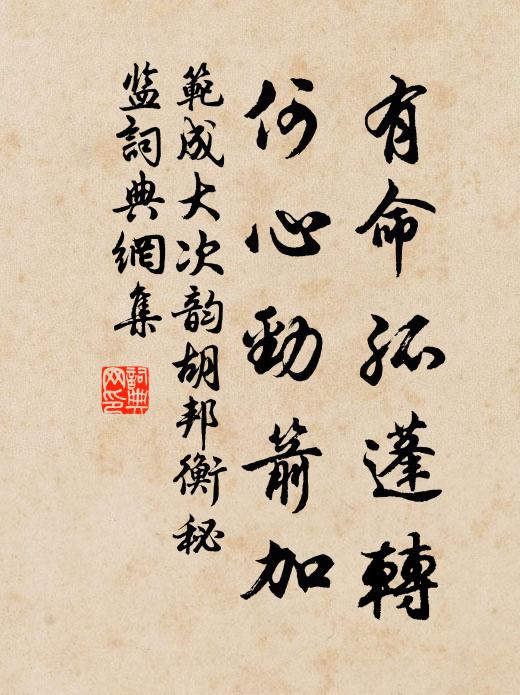 有命孤蓬轉
何心勁箭加
範成大次韵胡邦衡秘
監詞典網集
詞典网印